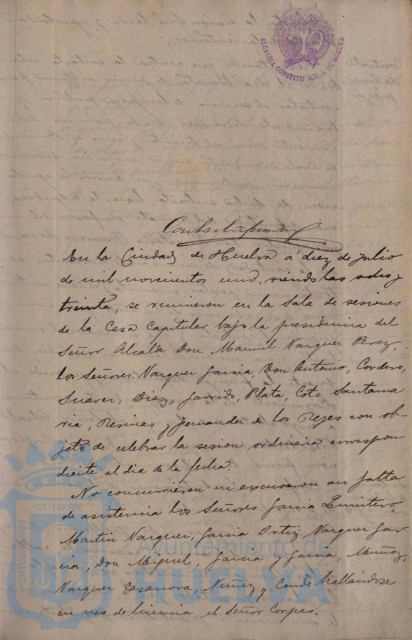 ALCALDIA CONSTITUCIONAL DE HUELVA
En la Ciudad de Huelva á diez de julio
de mil novecientos uno, siendo las
treinta, se reunieron en la Sala de sesiones
de la Casa Capitular bajo la presidencia del
Señor Alcalde Don Manuel Vazquez Perez,
los Señores Vazquez Garcia, Don Antonio, Cordero,
Suarez, Diaz, Garrido, Plata, Coto, Santama
ria, Resinas y Fernandez de los Reyes con ob-
jeto de celebrar la sesion ordinaria correspon
diente al dia de la fecha.
No concurrieron ni excusaron su falta
de asistencia los Señores Garcia Quintero,
Martin Vazquez, Garcia Ortiz, Vazquez Gar
cia, Don Miguel, Garcia y Garcia, Muñoz,
Vazquez Casanova, Nuñez y Conde hallándose
en uso de licencia el Señor Corpas.
Ayuntamiento
HUELVA